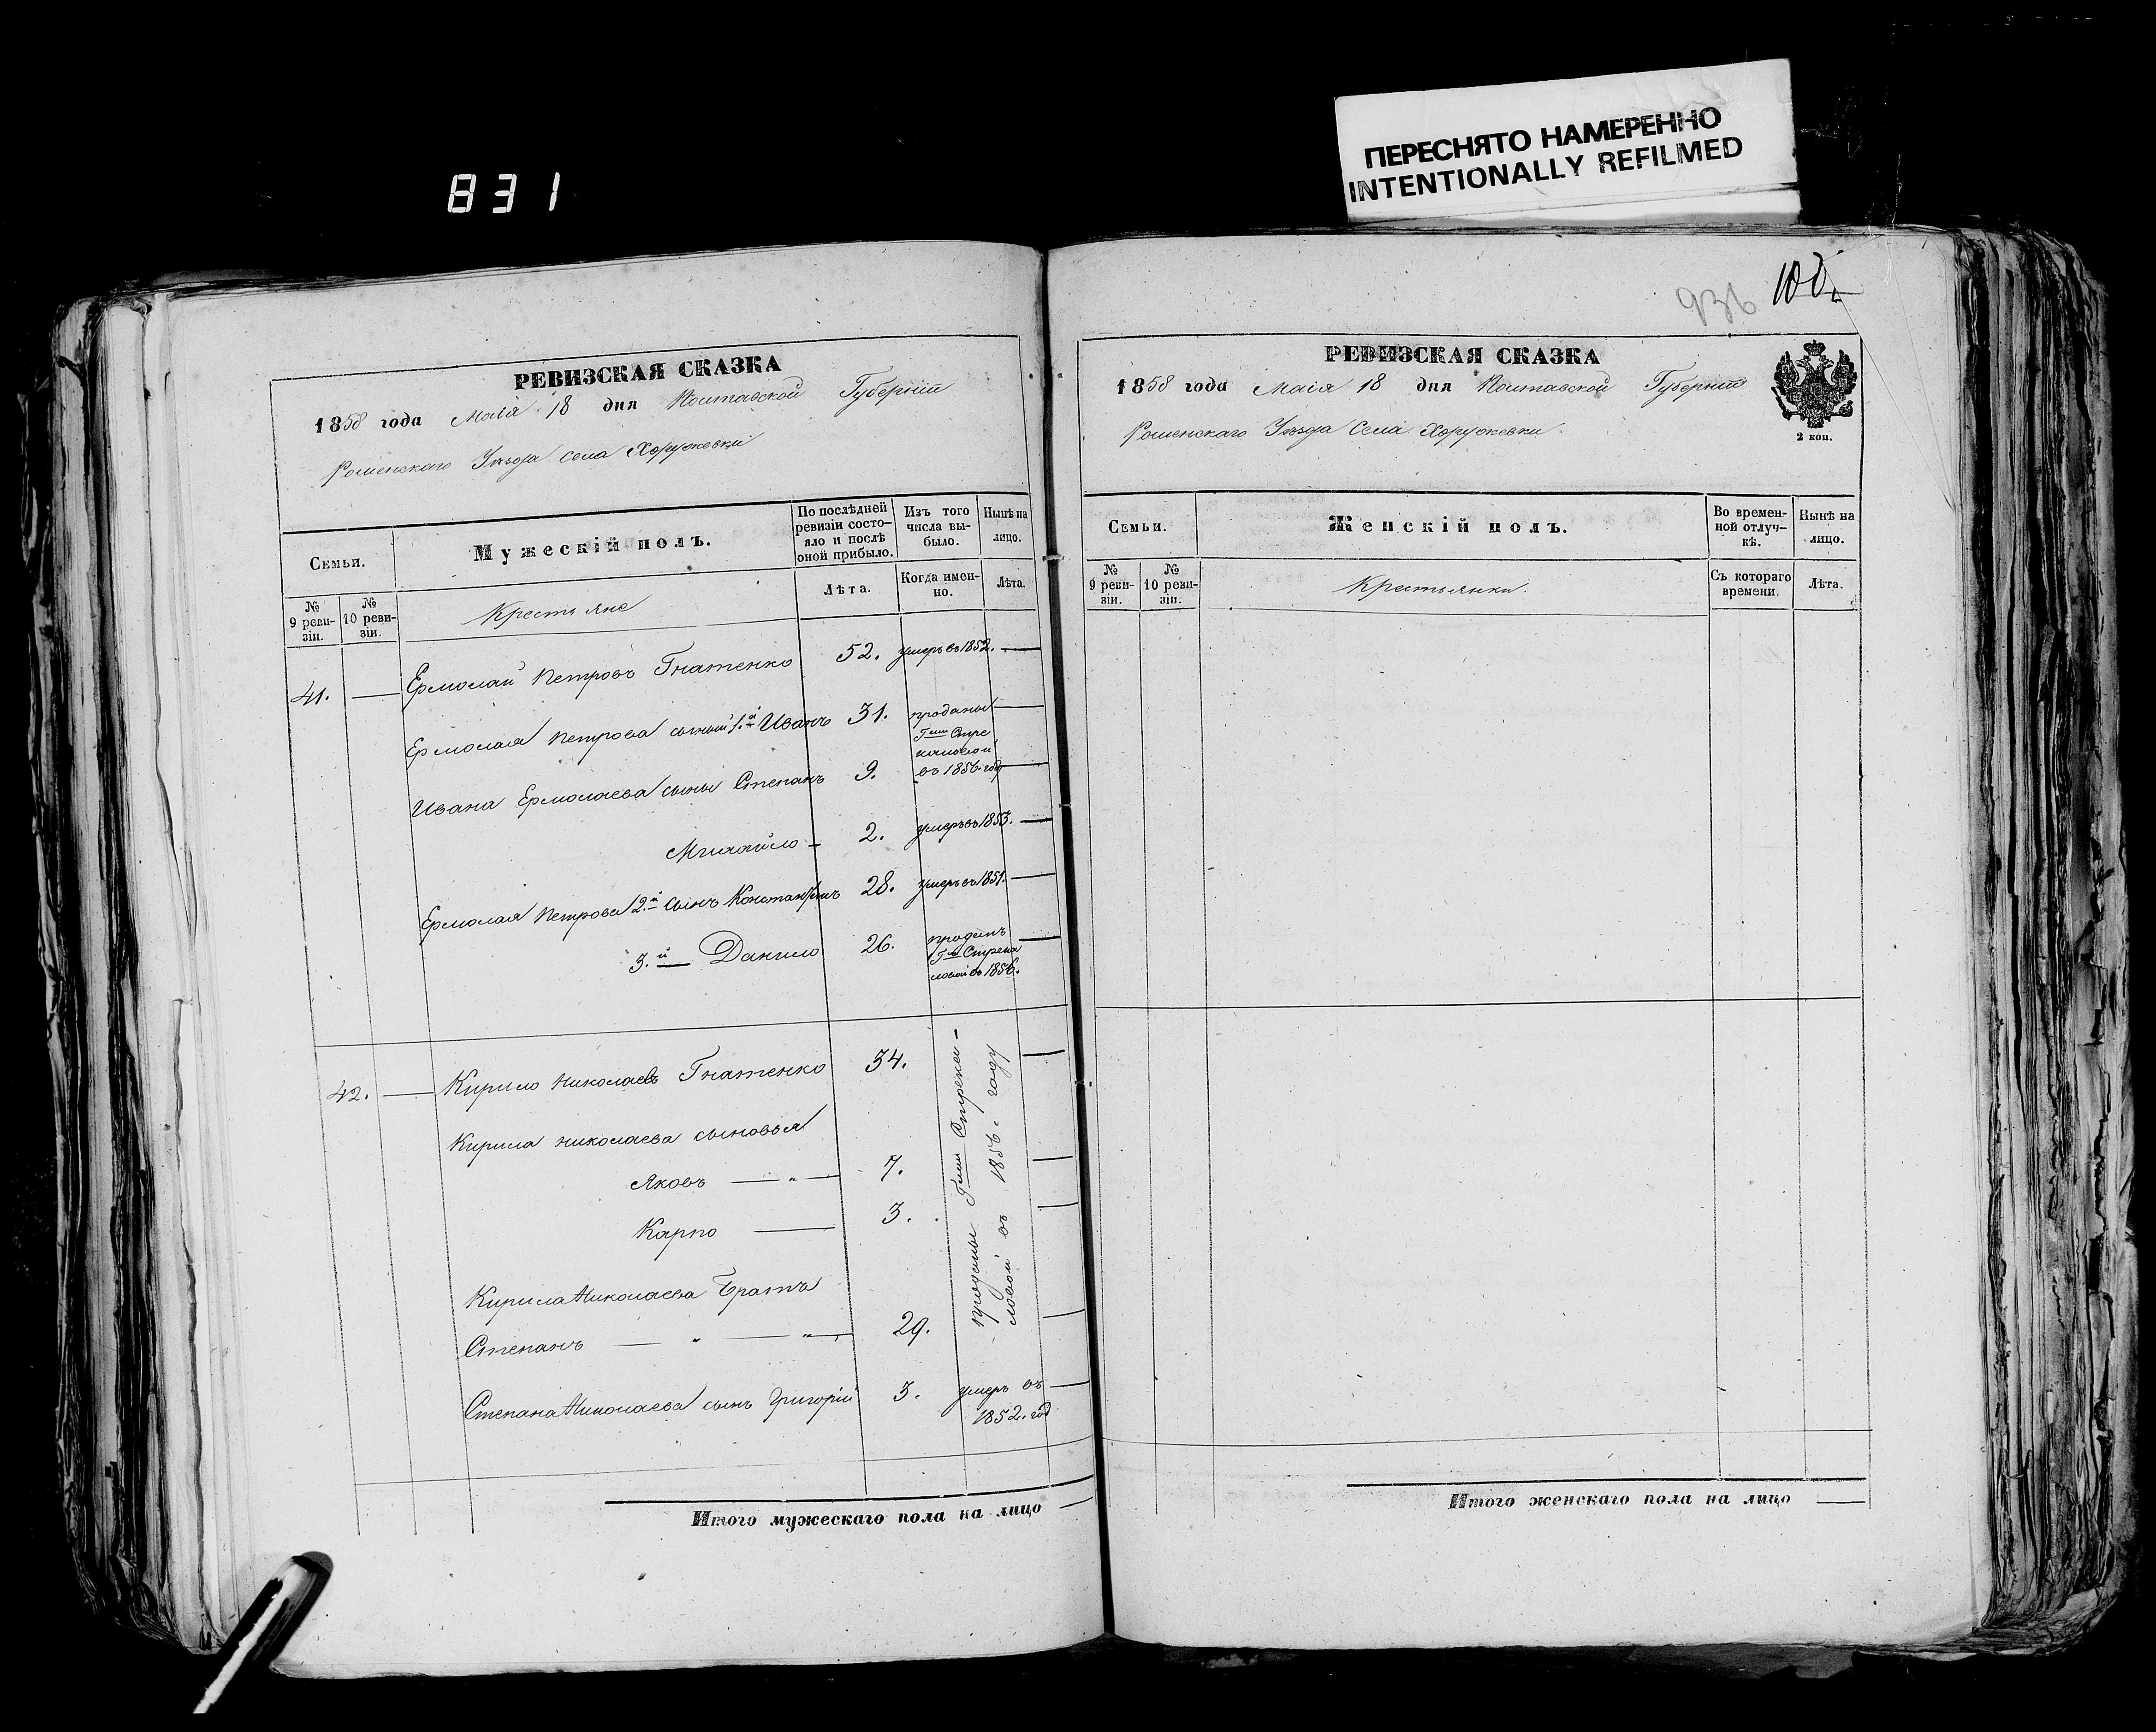 831
ПЕРЕСНЯТО НАМЕРЕННО
INTENTIONALLY REFILMED
РЕВИЗСКАЯ СКАЗКА
1858 года Маія 18 дня Полтавской Губерніи
Роменскаго Уѣзда Села Хоружевки
Семьи.
Мужескій полъ.
По послѣдней ревизіи состояло и послѣ оной прибыло.
Изъ того числа выбыло.
Нынѣ на лицо.
№ 9 ревизіи.
№ 10 ревизіи.
Крестьяне
Лѣта.
Когда именно.
Лѣта.
41. — Ермолай Петровъ Гнатенко 52. умеръ въ 1852. —
Ермолая Петрова сыновья 1.й Иванъ 31. проданы —
Г-жи Стре
каловой
Ивана Ермолаева сыны Степанъ 9. въ 1856 год —
Михайло — 2. умеръ въ 1853. —
Ермолая Петрова 2.й сынъ Константинъ 28. умеръ въ 1851. —
3.й — Данило 26. проданъ —
Г-жи Стрека
ловой въ 1856.
42. — Кирило Николаевъ Гнатенко 34. —
Кирила Николаева сыновья
Яковъ — „ — 7. —
Карпо — 3. —
проданы Г-жи Стрека-
ловой въ 1856. году
Кирила Николаева Братъ
Степанъ — „ — „ — 29. —
Степана Николаева сынъ Григорій 3. умеръ въ —
1852. год
Итого мужескаго пола на лицо —
936
100.
РЕВИЗСКАЯ СКАЗКА
1858 года Маія 18 дня Полтавской Губерніи
Роменскаго Уѣзда Села Хоружевки.
2 коп.
Семьи.
Женскій полъ.
Во временной отлучкѣ.
Нынѣ на лицо.
№ 9 ревизіи.
№ 10 ревизіи.
Крестьянки.
Съ котораго времени.
Лѣта.
Итого женскаго пола на лицо —